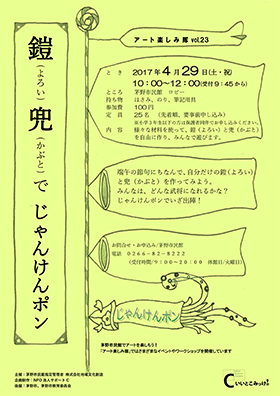 アート楽しみ隊 vol.23
鎧(よろい)兜(かぶと)で じゃんけんポン
とき 2017年4月29日(土・祝)
10:00~12:00(受付9:45から)
ところ 茅野市民館 ロビー
持ち物 はさみ、のり、筆記用具
参加費 100円
定員 25名 (先着順、要事前申し込み)
※小学3年生以下の方は保護者同伴でお申し込みください。
内容 様々な材料を使って、鎧(よろい)と兜(かぶと)
を自由に作り、みんなで遊びます。
端午の節句にちなんで、自分だけの鎧(よろい)
と兜(かぶと)を作ってみよう。
みんなは、どんな武将になれるかな?
じゃんけんポンでいざ出陣!
お問合せ・お申込み/茅野市民館
電話 0266-82-8222
(受付時間/9:00~20:00 休館日/火曜日)
じゃんけんポン
茅野市民館でアートを楽しもう!
「アート楽しみ隊」ではさまざまなイベントやワークショップを開催しています
主催:茅野市民館指定管理者 株式会社地域文化創造
企画制作:NPO法人サポートC
後援:茅野市、茅野市教育委員会
いいとこみっけ。